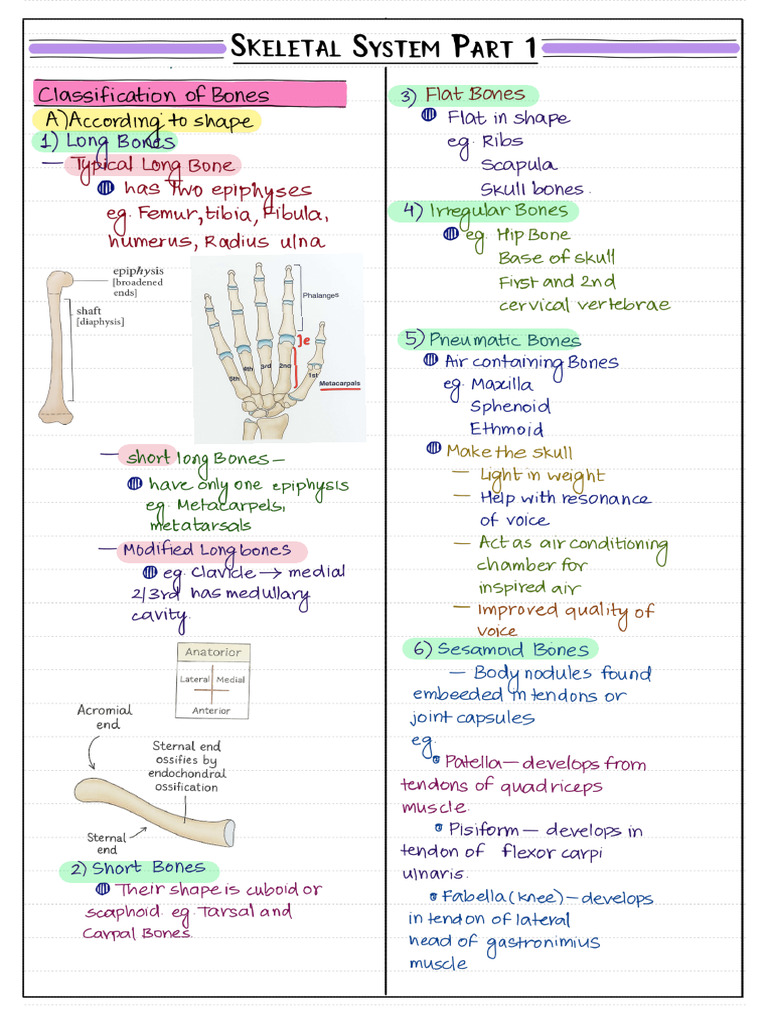 SKELETAL SYSTEM PART 1
Classification of Bones
A) According to shape
1) Long Bones
— Typical Long Bone
has Two epiphyses
eg. Femur, tibia, Fibula,
humerus, Radius ulna
epiphysis
[broadened
ends]
shaft
[diaphysis]
Phalanges
]e
5th 4th 3rd 2nd 1st
Metacarpals
— short long Bones —
have only one epiphysis
eg. Metacarpels,
metatarsals
— Modified Long bones
eg. Clavicle → medial
2/3rd has medullary
cavity.
Anatorior
Lateral Medial
Anterior
Acromial
end
Sternal end
ossifies by
endochondral
ossification
Sternal
end
2) Short Bones
Their shape is cuboid or
scaphoid. eg. Tarsal and
Carpal Bones.
3) Flat Bones
Flat in shape
eg. Ribs
Scapula
Skull bones.
4) Irregular Bones
eg. Hip Bone
Base of skull
First and 2nd
cervical vertebrae
5) Pneumatic Bones
Air containing Bones
eg. Maxilla
Sphenoid
Ethmoid
Make the skull
— Light in weight
— Help with resonance
of voice
— Act as air conditioning
chamber for
inspired air
— Improved quality of
voice
6) Sesamoid Bones
— Body nodules found
embeeded in tendons or
joint capsules
eg.
Patella — develops from
tendons of quadriceps
muscle.
Pisiform — develops in
tendon of flexor carpi
ulnaris.
Fabella (knee) — develops
in tendon of lateral
head of gastronimius
muscle